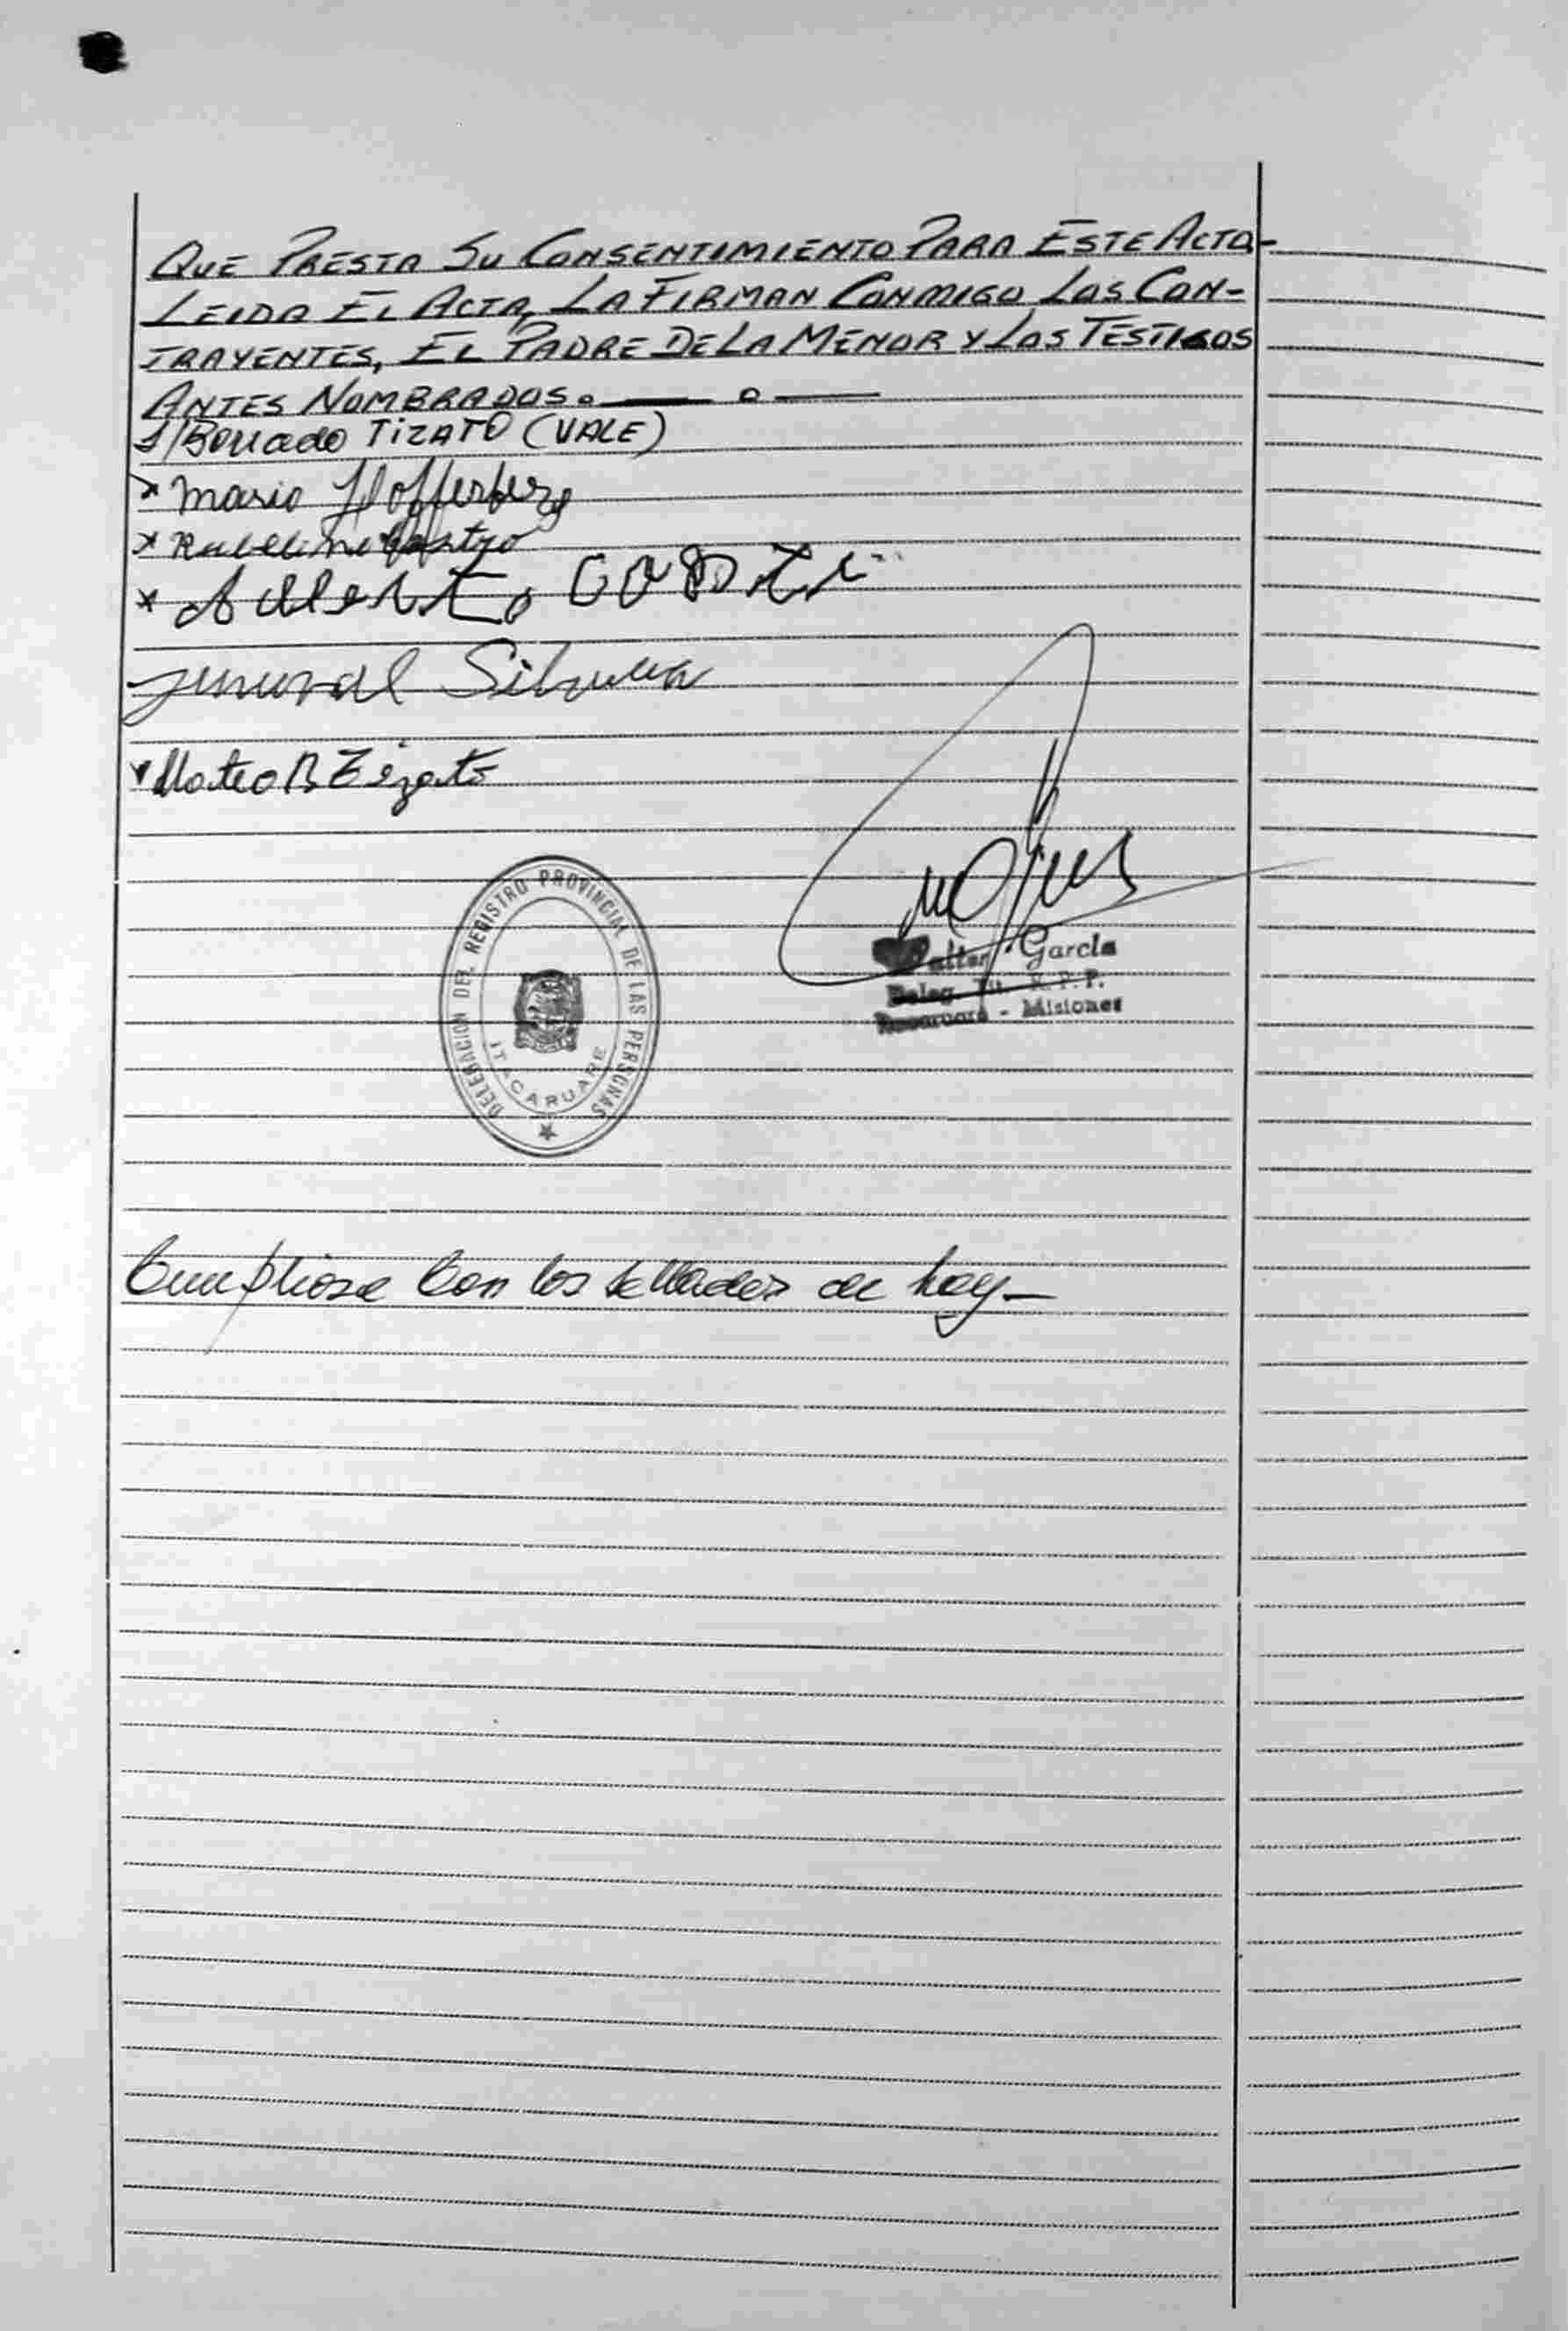 QUE PRESTA SU CONSENTIMIENTO PARA ESTE ACTO.-
LEIDA EL ACTA, LA FIRMAN CONMIGO LOS CON-
TRAYENTES, EL PADRE DE LA MENOR Y LOS TESTIGOS
ANTES NOMBRADOS. — o —
S/Borrado TIZATO (VALE)
x Mario Hofferber
x Castro
x Alberto
Silveira
Mateo B Tizato
DELEGACION DEL REGISTRO PROVINCIAL DE LAS PERSONAS
ITACARUARE
Walter García
Deleg. Tit. R.P.P.
Itacaruaré - Misiones
Cumpliose con los sellados de hoy-